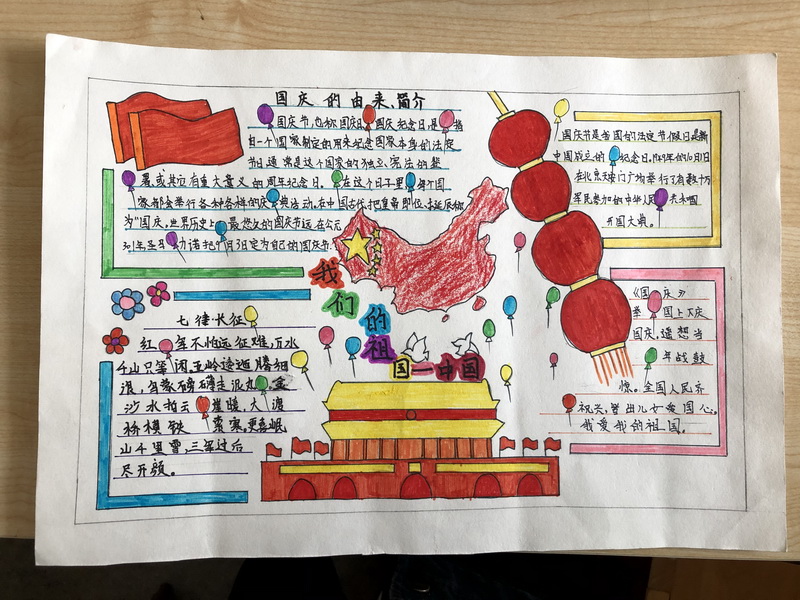 国庆的由来、简介
国庆节,也称国庆日、国庆纪念日,是指
由一个国家制定的用来纪念国家本身的法定
节日,通常是这个国家的独立、宪法的签
署,或其它有重大意义的周年纪念日。在这个日子里每个国
家都会举行各种各样的庆典活动,在中国古代把皇帝即位、诞辰称
为"国庆,世界历史上最悠久的国庆节远在公元
301年,圣马力诺把9月3日定为自己的国庆节.
我们的祖国—中国
七律·长征
红军不怕远征难,万水
千山只等闲,五岭逶迤腾细
浪,乌蒙磅礴走泥丸。金
沙水拍云崖暖,大渡
桥横铁索寒,更喜岷
山千里雪,三军过后
尽开颜。
国庆节是各国的法定节假日是新
中国成立的纪念日,1949年的10月1日
在北京天安门广场举行了有数十万
军民参加的中华人民共和国
开国大典。
《国庆》
举国上大庆
国庆,遥想当
年战鼓
惊。全国人民齐
祝兴,华出儿女爱国心。
我爱我的祖国。